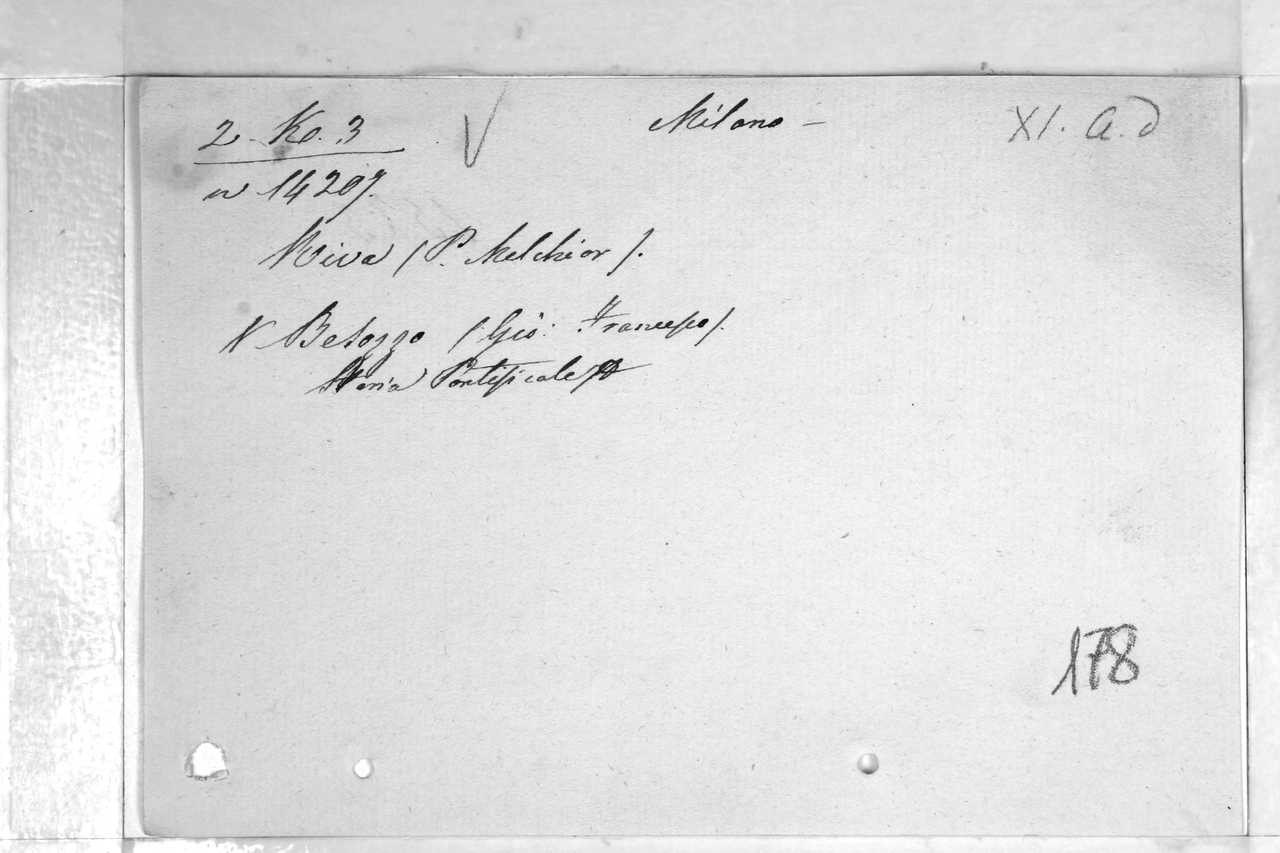 2 Ko. 3 Milano – XI. a. d
n 14207.
Riva (P. Melchior).
V Besozzo (Gio: Francesco).
Storia Pontificale
178